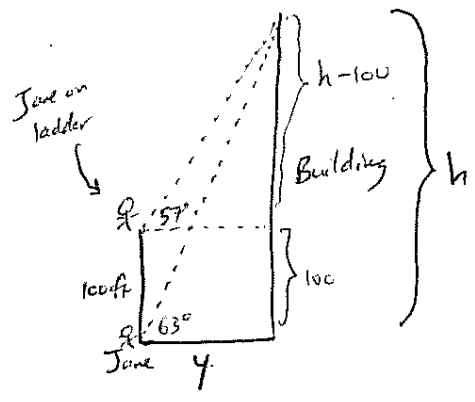 Jane on
ladder
h-100
Building
h
57°
100ft
100
63°
Jane
y